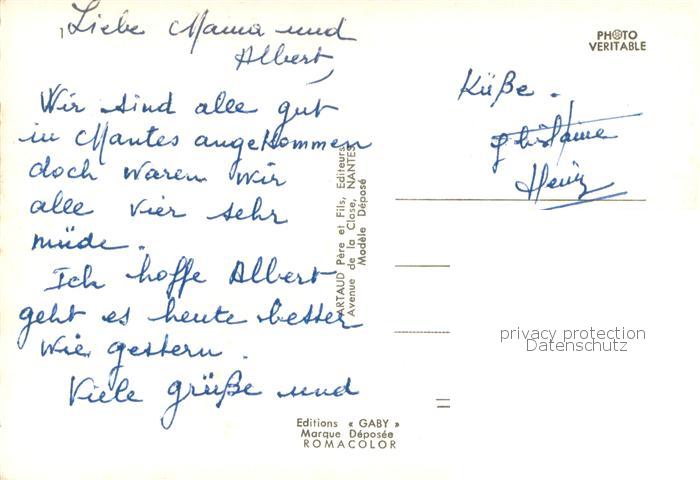 Liebe Mama und
Albert,
Wir sind alle gut
in Nantes angekommen
doch waren wir
alle vier sehr
müde.
Ich hoffe Albert
geht es heute besser
wie gestern.
Viele grüße und
Küße.
Ghislaine
Heinz
PHOTO
VERITABLE
ARTAUD Père et Fils, Editeurs
Avenue de la Close, NANTES
Modèle Déposé
privacy protection
Datenschutz
Editions « GABY »
Marque Déposée
ROMACOLOR